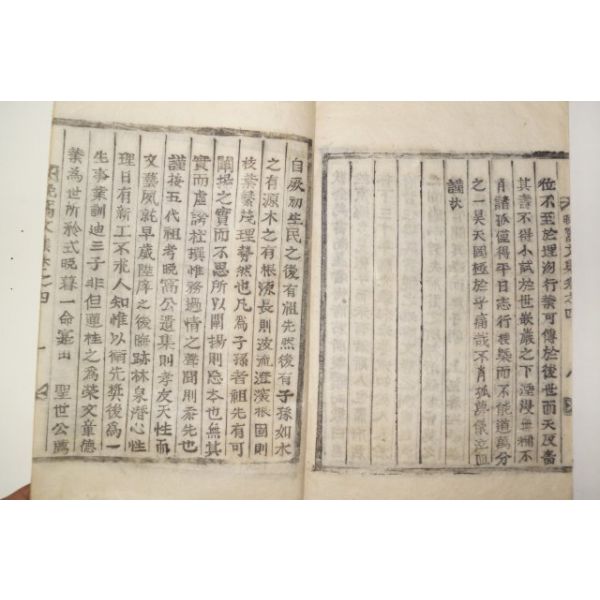 位不至於理沕行業可傳於後世而天反嗇
其壽不得小試於世嵌巖之下湮沒無稱不
肖諸孤僅得平日志行模槩而不能道萬分
之一昊天罔極於乎痛哉不肖孤萬儀泣血
謹狀
自厥初生民之後有祖先然後有子孫如水
之有源木之有根源長則波流澄滾根固則
枝葉繁茂理勢然也凡爲子孫者祖先有可
闡揚之實而不思所以闡揚則忽本也無其
實而虛誇杜撰惟務過情之聲聞則忝先也
謹按五代祖考晩窩公遺集則孝友天性而
文藝夙就早歲陞庠之後晦跡林泉潛心性
理日有新工不求人知惟以衛先奬後爲一
生事業訓迪三子非但蓮桂之爲榮文章德
業爲世所矜式晩暮一命寔由聖世公薦
晩窩文集卷之四